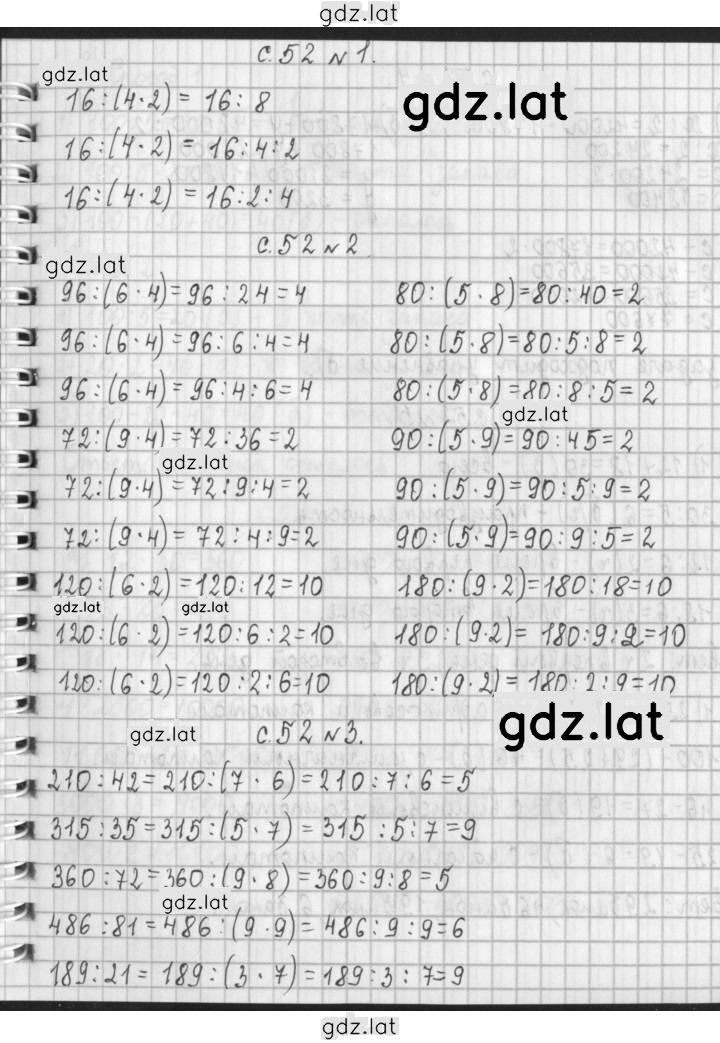 gdz.lat
с.52 №1.
gdz.lat
gdz.lat
16:(4·2) = 16:8
16:(4·2) = 16:4:2
16:(4·2) = 16:2:4
с.52 №2
gdz.lat
96:(6·4)=96:24=4 80:(5·8)=80:40=2
96:(6·4)=96:6:4=4 80:(5·8)=80:5:8=2
96:(6·4)=96:4:6=4 80:(5·8)=80:8:5=2
gdz.lat
72:(9·4)=72:36=2 90:(5·9)=90:45=2
gdz.lat
72:(9·4)=72:9:4=2 90:(5·9)=90:5:9=2
72:(9·4)=72:4:9=2 90:(5·9)=90:9:5=2
120:(6·2)=120:12=10 180:(9·2)=180:18=10
gdz.lat gdz.lat
120:(6·2)=120:6:2=10 180:(9·2)=180:9:2=10
120:(6·2)=120:2:6=10 180:(9·2)=180:2:9=10
gdz.lat
с.52 №3.
gdz.lat
210:42=210:(7·6)=210:7:6=5
315:35=315:(5·7)=315:5:7=9
360:72=360:(9·8)=360:9:8=5
gdz.lat
486:81=486:(9·9)=486:9:9=6
189:21=189:(3·7)=189:3:7=9
gdz.lat